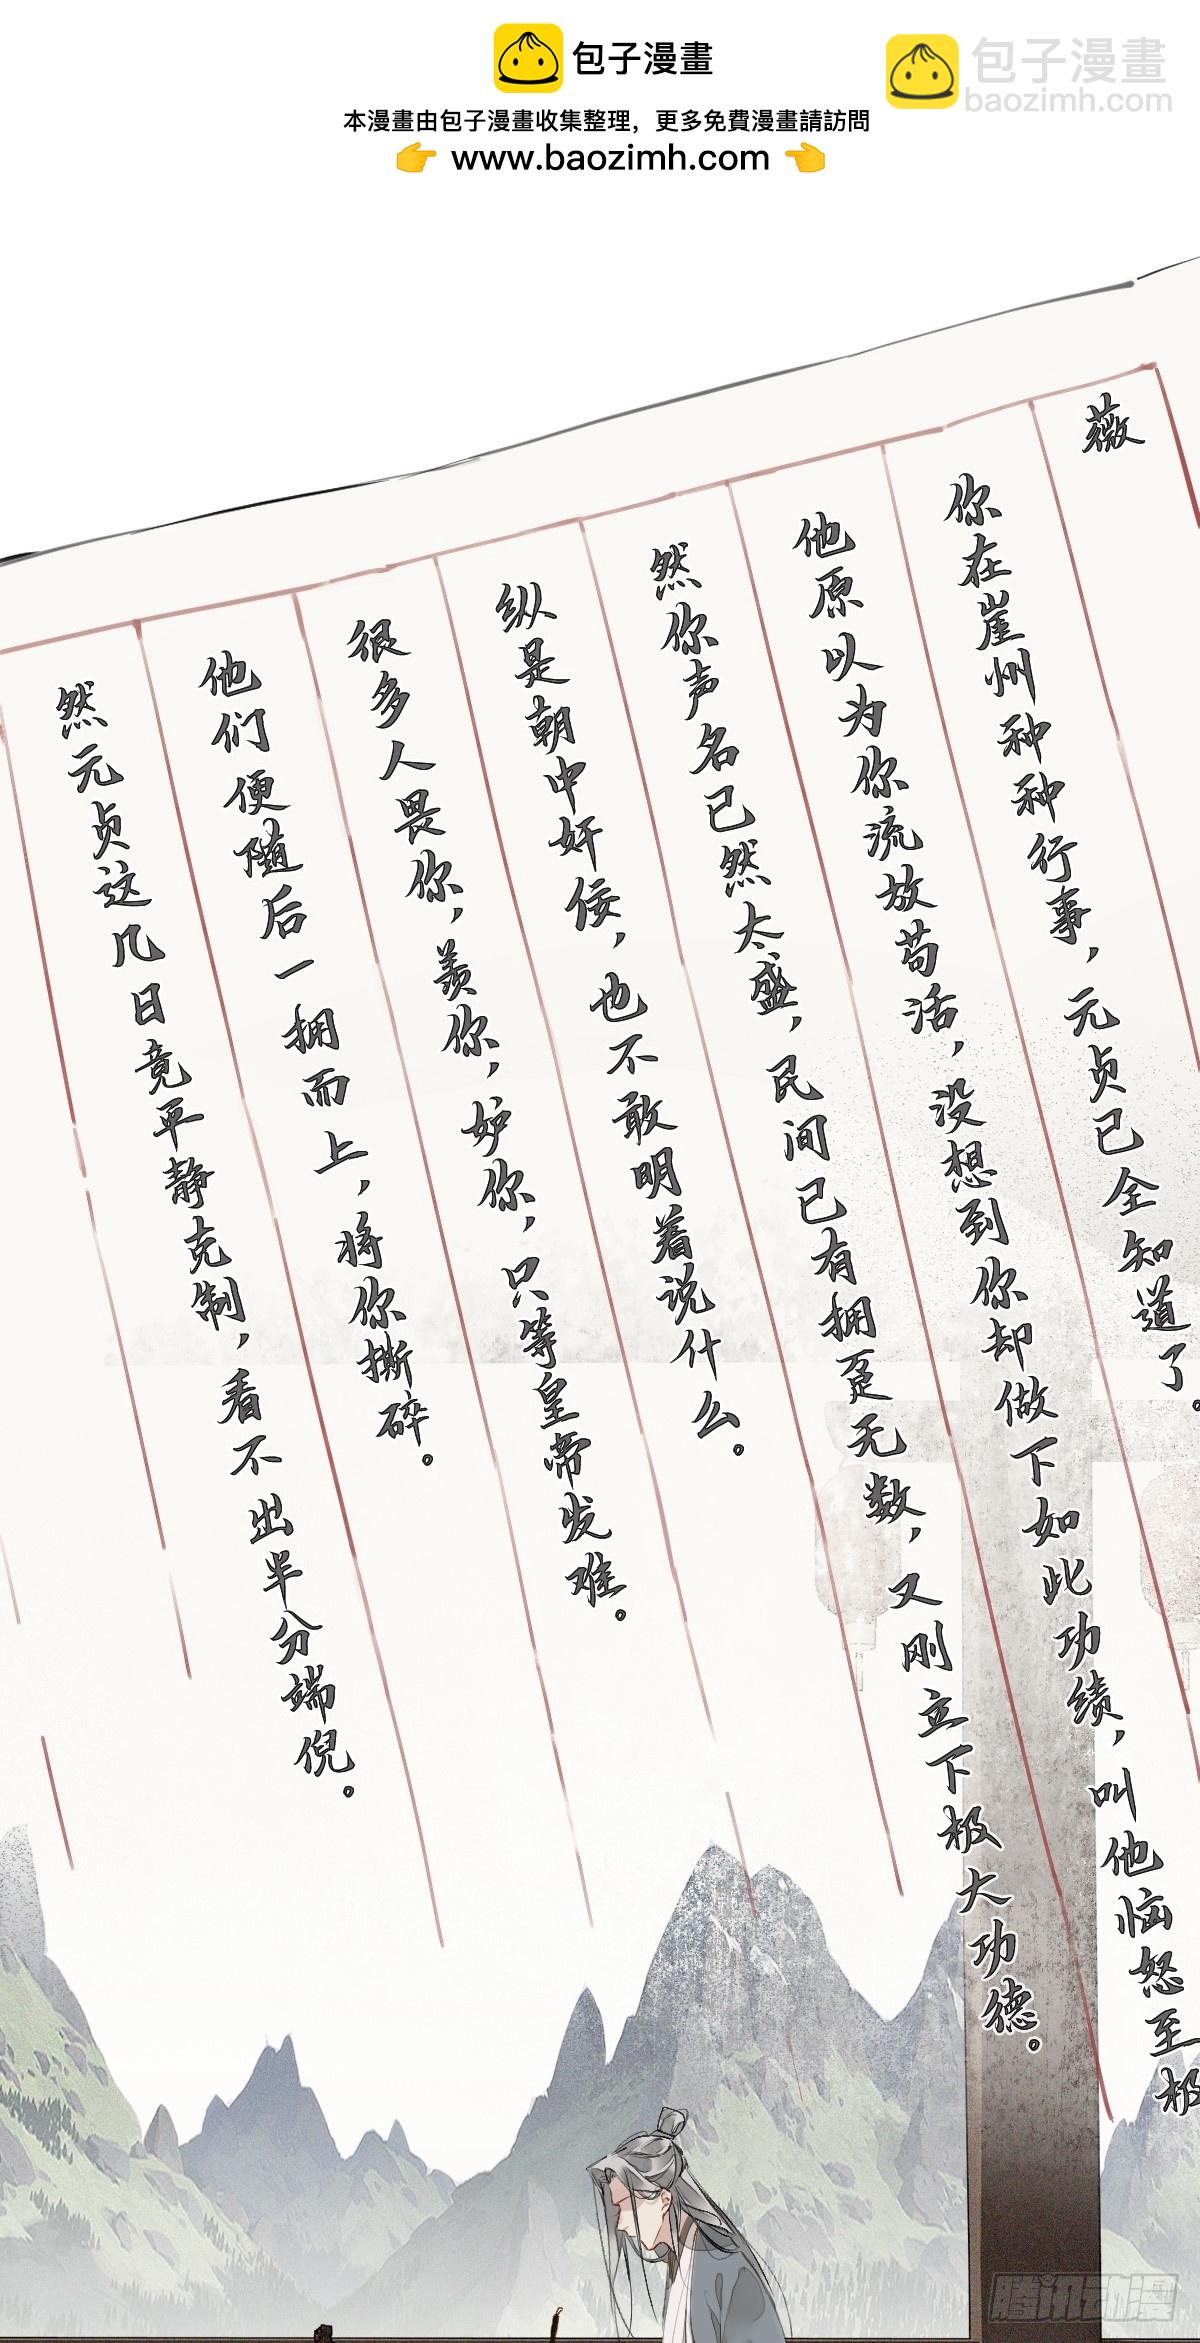 包子漫畫
包子漫畫
baozimh.com
本漫畫由包子漫畫收集整理，更多免費漫畫請訪問
www.baozimh.com
薇
你在崖州种种行事，元贞已全知道了。
他原以为你流放苟活，没想到你却做下如此功绩，叫他恼怒至极
然你声名已然太盛，民间已有拥趸无数，又刚立下极大功德。
纵是朝中奸佞，也不敢明着说什么。
很多人畏你，羡你，妒你，只等皇帝发难。
他们便随后一拥而上，将你撕碎。
然元贞这几日竟平静克制，看不出半分端倪。
腾讯动漫